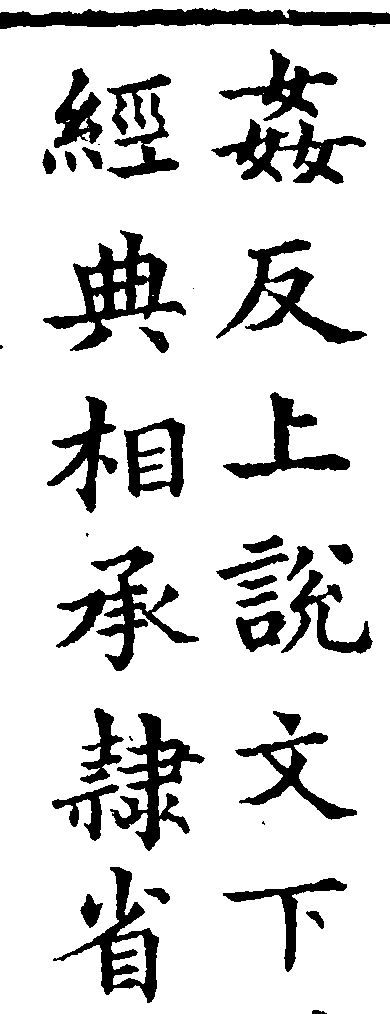 姦反上說文下
經典相承隷省